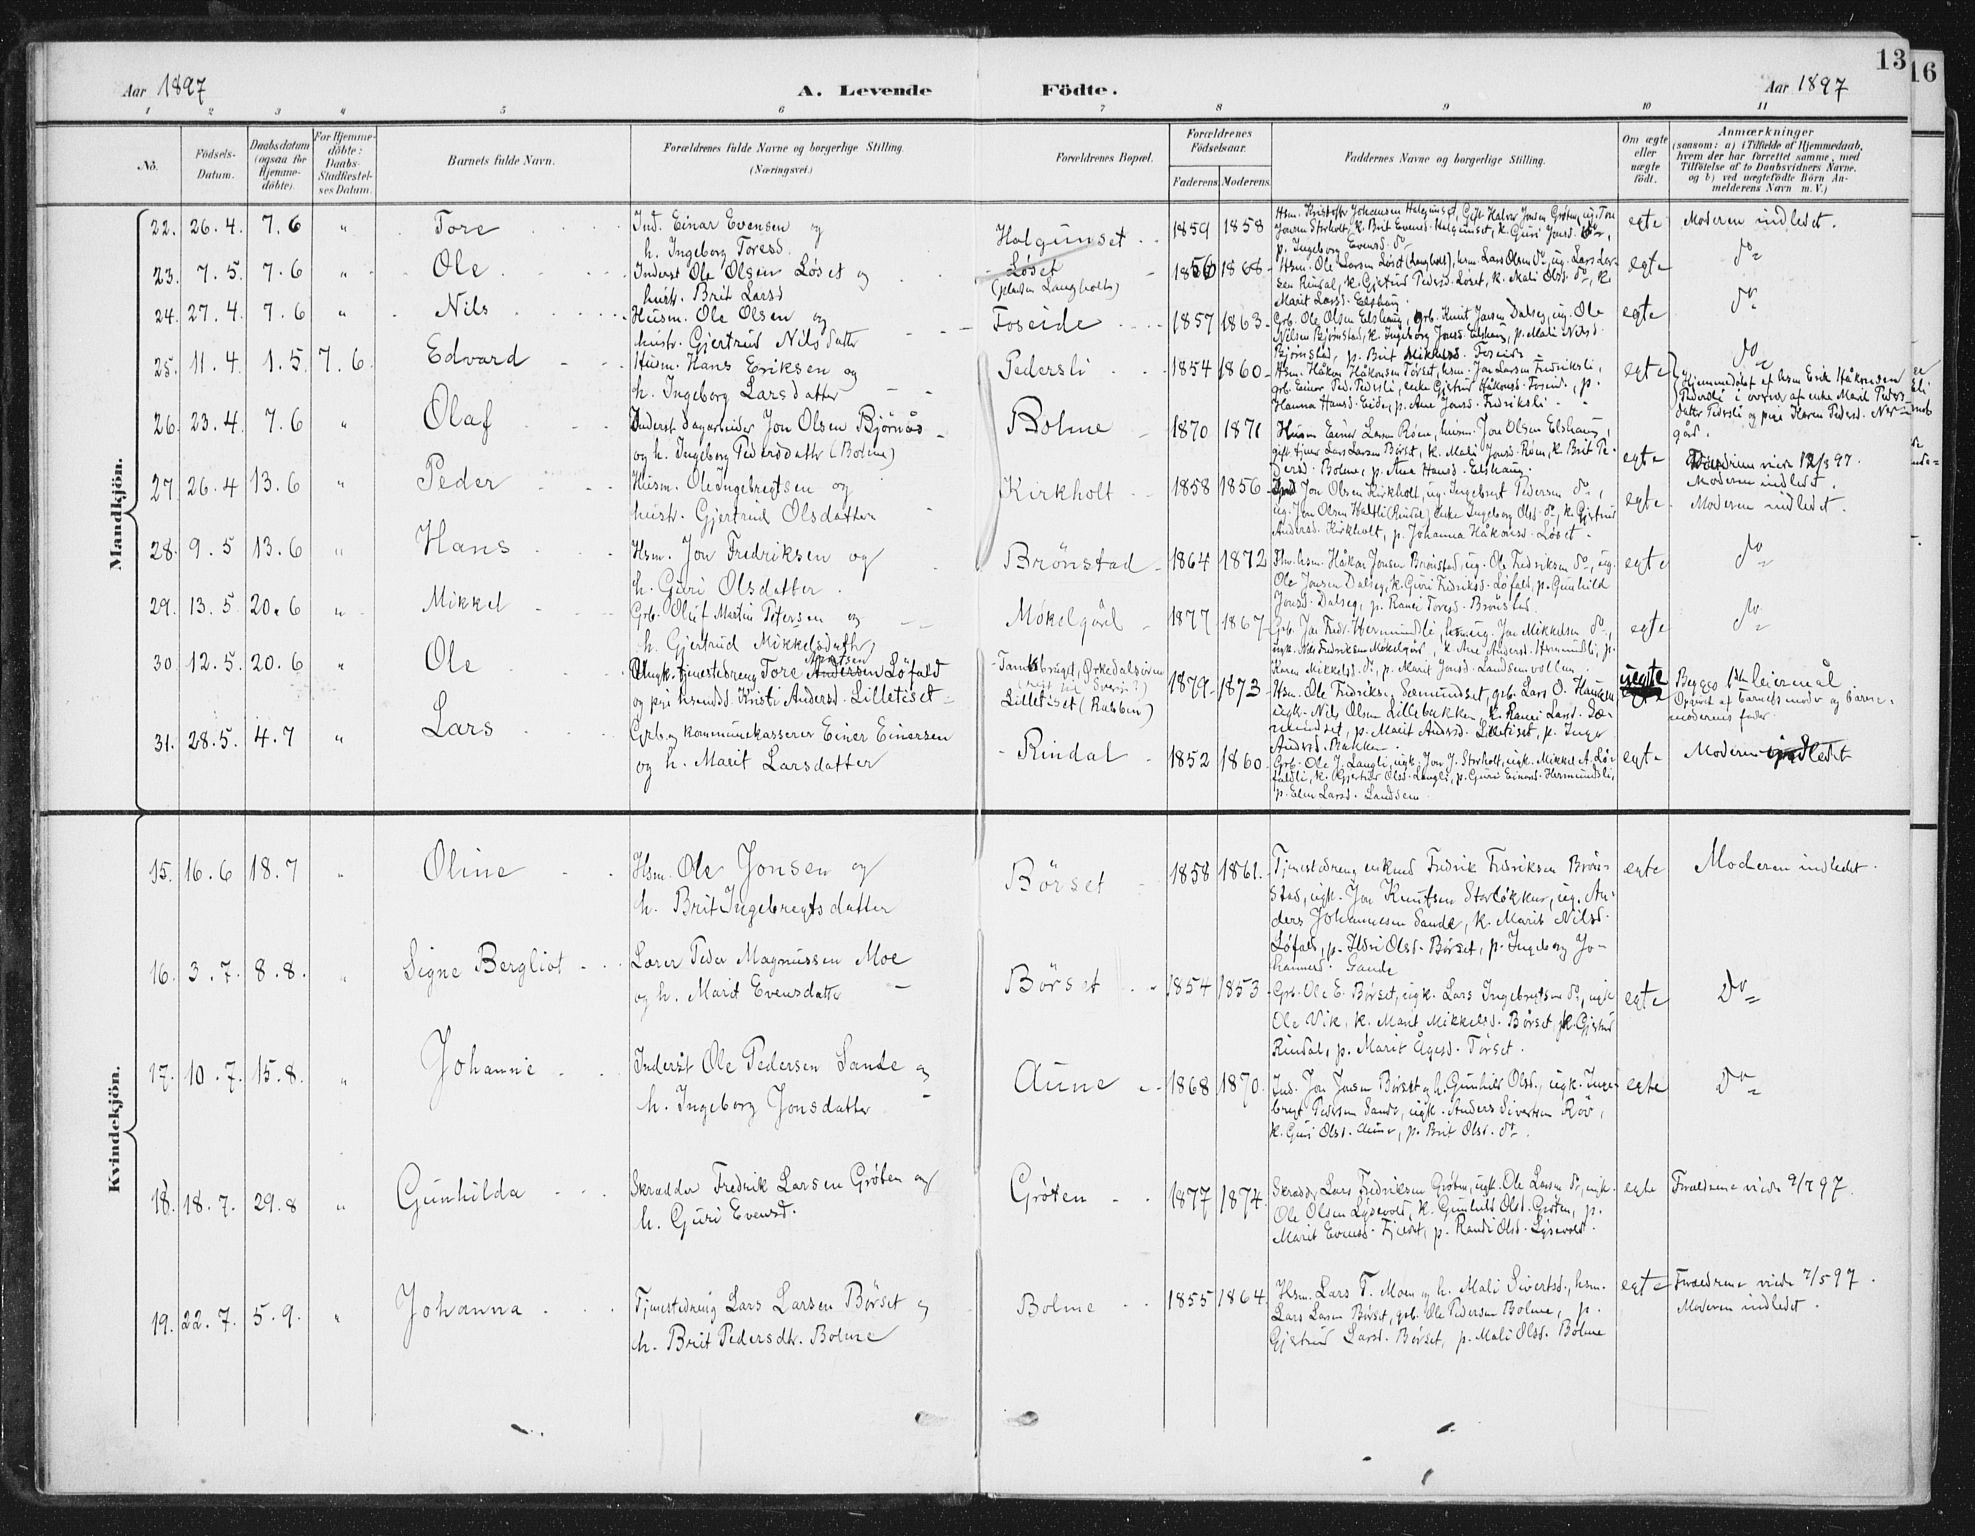 13
16
Aar 1897
A. Levende
Födte.
Aar 1897
1 2 3 4 5 6 7 8 9 10 11
No.
Födsels-
Datum.
Daabsdatum
(ogsaa for
Hjemme-
döbte).
For Hjemme-
döbte:
Daabs-
Stadfæstel-
ses Datum.
Barnets fulde Navn.
Forældrenes fulde Navne og borgerlige Stilling.
(Næringsvei.)
Forældrenes Bopæl.
Forældrenes
Födselsaar.
Faderens. Moderens.
Faddernes Navne og borgerlige Stilling.
Om ægte
eller
uægte
födt.
Anmærkninger
(saasom: a) i Tilfælde af Hjemmedaab,
hvem der har forrettet samme, med
Tilföielse af to Daabsvidners Navne.
og b) ved uægtefödte Börn An-
melderens Navn m. V.)
Mandkjön.
22. 26.4. 7.6 " Tore
Ind. Einar Evensen og
h. Ingeborg Toresd.
Halgunset
1859 1858
Hsm. Kristoffer Johansen Halgunset, Gift Halvor Jonsen Grøten, ug. Tore
Jonsen Storholt, k. Brit Evensd. Halgunset, k. Guri Jonsd. do,
p. Ingeborg Evensd. do
egte
Moderen indledet.
23. 7.5. 7.6 " Ole
Inderst Ole Olsen Løset og
hustr. Brit Larsd
Løset
(pladsen Langholtet)
1856 1868
Hsm. Ole Larsen Løset (Langholt), hsm. Lars Olsen do, ug. Lars Lar-
sen Rindal, k. Gjertrud Pedersd. Løset, k. Mali Olsd. do, k.
Marit Larsd. Elshaug.
egte
do
24. 27.4. 7.6 " Nils
Husm. Ole Olsen og
hustr. Gjertrud Nilsdatter
Foseide
1857 1863
Grb. Ole Olsen Elshaug, grb. Knut Jonsen Dalseg, ug. Ole
Nilsen Bjørnstad, k. Ingeborg Jonsd. Elshaug, p. Mali Nilsd.
Bjørnstad, p. Brit Mikkelsd. Foseide
egte
do
25. 11.4. 1.5 7.6. Edvard
Husm. Hans Eriksen og
h. Ingeborg Larsdatter
Pedersli
1854 1860
Hsm. Håkon Håkonsen Tørset, hsm. Jon Larsen Fredriksli,
grb. Einer Ped. Pedersli, enke Gjertrud Håkonsd. Foseid., p.
Hanna Hansd. Eide, p. Ane Jonsd. Fredriksli
egte
do
Hjemmedøbt af hsm Erik Håkonsen
Pedersli i overvær af enke Marit Peders-
datter Pedersli og pige Karen Pedersd. Nær-
gård.
26. 23.4. 7.6 " Olaf
Inderst dagarbeider Jon Olsen Bjørnås
og h. Ingeborg Pedersdatter (Bolme)
Bolme
1870 1871
Husm Einer Larsen Røen, husm. Jon Olsen Elshaug,
gift tjener Lars Larsen Børset, k. Mali Jonsd. Røen, k. Brit Pe-
dersd. Bolme, p. Ane Hansd. Elshaug.
egte
Forældrene viede 12/3 97.
Moderen indledet.
27. 26.4 13.6 " Peder
Husm. Ole Ingebregtsen og
hustr. Gjertrud Olsdatter
Kirkholt
1858 1856
Ind Jon Olsen Kirkholt, ug. Ingebregt Pedersen do,
ug. Jon Olsen Haltli (Rindal), enke Ingeborg Olsd. do, k. Gjertrud
Andersd. Kirkholt, p. Johanna Håkonsd. Løset.
egte.
Moderen indledet.
28. 9.5 13.6 " Hans
Hsm. Jon Fredriksen og
h. Guri Olsdatter.
Brønstad
1864 1872
Hsm. Håkon Jonsen Brønstad, ug. Ole Fredriksen do, ug.
Ole Jonsen Dalseg, k. Guri Fredriksd. Løfald, p. Gunhild
Jonsd. Dalseg, p. Ranei Toresd. Brønstad.
egte
do
29. 13.5 20.6 " Mikkel
Grb. Oluf Martin Petersen og
h. Gjertrud Mikkelsdatter
Mokelgård
1877 1867
Grb. Jon Fredr. Hermundsli, ug. Jon Mikkelsen do,
ugk. Nils Fredriksen Mokelgård, k. Ane Andersd. Hermundsli, p.
Karen Mikkelsd. do, p. Marit Jonsd. Landsemvollen
egte
do
30 12.5. 20.6 " Ole
Ungk. tjenestedreng Tore Andersen Løfald
og pi. husmdsd. Kristi Andersd. Lilletiset
Orkedalsøren
Lilletiset (Rabben)
1879 1873
Hsm. Ole Fredriksen Sæmundset, grb. Lars O. Haugen,
ugk. Nils Olsen Lillebakken, k. Ranei Larsd. Sæ-
mundset, p. Marit Andersd. Lilletiset, p. Inger
Andersd. Bakken.
uegte
Begges 1ste Leiermål
Opgivet af barnets moder og barne-
moderens fader.
31. 28.5. 4.7 " Lars
Grb. og kommunekasserer Einer Einersen
og h. Marit Larsdatter
Rindal
1852 1860
Grb. Ole J. Langli, ugk. Jon J. Storholt, ugk. Mikkel A. Lø-
faldli, k. Gjertrud Olsd. Langli, p. Guri Einersd. Hermundsli,
p. Elen Larsd. Landsem.
egte
Moderen indledet
Kvindekjön.
15. 16.6 18.7 " Oline
Hsm. Ole Jonsen og
h. Brit Ingebregtsdatter
Børset
1858 1861.
Tjenestedreng enkemd Fredrik Fredriksen Brøn-
stad, ugk. Jon Knutsen Storløkken, ug. An-
ders Johannesen Sande, k. Marit Nilsd.
Løfald, p. Hari Olsd. Børset, p. Ingeborg Jo-
hannesd. Sande
egte
Moderen indledet.
16. 3.7. 8.8. " Signe Bergliot
Lærer Peder Magnussen Moe
og h. Marit Evensdatter
Børset
1854 1853
Grb. Ole E. Børset, ugk. Lars Ingebregtsen do, ugk
Ole Vik, k. Marit Mikkelsd. Børset, k. Gjertrud
Rindal, p. Marit Ågesd. Tørset.
egte
Do
17. 10.7. 15.8. " Johanne
Inderst Ole Pedersen Sande og
h. Ingeborg Jonsdatter
Aune
1868 1870.
Ind. Jon Jonsen Børset og h. Gunhild Olsd., ugk. Inge-
bregt Pedersen Sande, ugk. Anders Sivertsen Röv,
k. Guri Olsd. Aune, p. Brit Olsd. do.
egte
Do
18. 18.7. 29.8 " Gunhilda
Skrædder Fredrik Larsen Grøten og
h. Guri Evensd.
Grøten
1877 1874.
Skrædder Lars Fredriksen Grøten, ugk. Ole Larsen do, ugk.
Ole Olsen Lysevold, k. Gunhild Olsd. Grøten, p.
Marit Evensd. Tjeset, p. Randi Olsd. Lysevold.
egte
Forældrene viede 9/7 97.
19. 22.7. 5.9. " Johanna
Tjenestedreng Lars Larsen Børset og
h. Brit Pedersdtr. Bolme
Bolme
1855 1864.
Hsm. Lars T. Moen og h. Mali Sivertsd., hsm.
Lars Larsen Børset, grb. Ole Pedersen Bolme, p.
Gjertrud Larsd. Børset, p. Mali Olsd. Bolme
egte
Forældrene viede 7/5 97.
Moderen indledet.